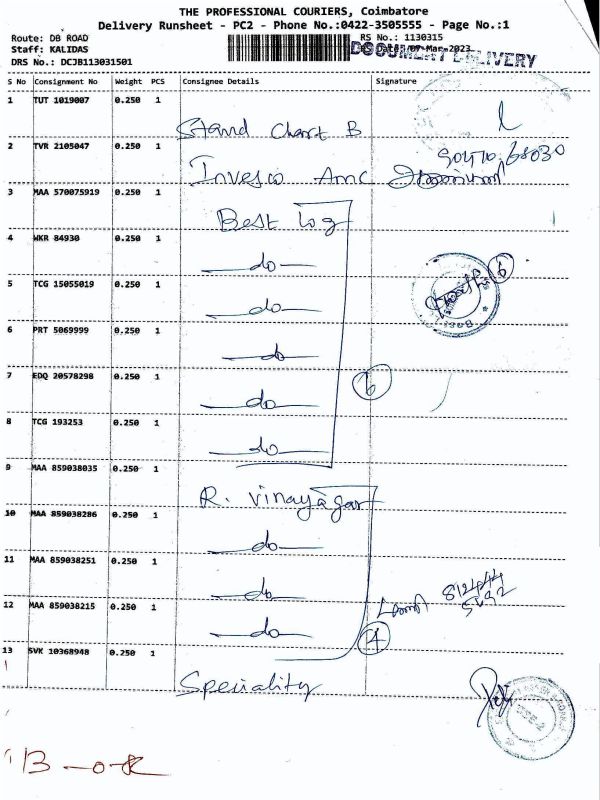 THE PROFESSIONAL COURIERS, Coimbatore
Delivery Runsheet - PC2 - Phone No.:0422-3505555 - Page No.:1
Route: DB ROAD RS No.: 1130315
Staff: KALIDAS RS Date: 07-Mar-2023
DOCUMENT DELIVERY
DRS No.: DCJB113031501
S No Consignment No Weight PCS Consignee Details Signature
1 TUT 1019007 0.250 1 Stand Chart B
2 TVR 2105047 0.250 1 Invesco Amc
3 MAA 570075919 0.250 1 Best log
4 WKR 84930 0.250 1 do
5 TCG 15055019 0.250 1 do 6
6 PRT 5069999 0.250 1 do
7 EDQ 20578298 0.250 1 do 6
8 TCG 193253 0.250 1 do
9 MAA 859038035 0.250 1 R. Vinayagar
10 MAA 859038286 0.250 1 do
11 MAA 859038251 0.250 1 do
12 MAA 859038215 0.250 1 do 4
13 SVK 10368948 0.250 1 Speciality